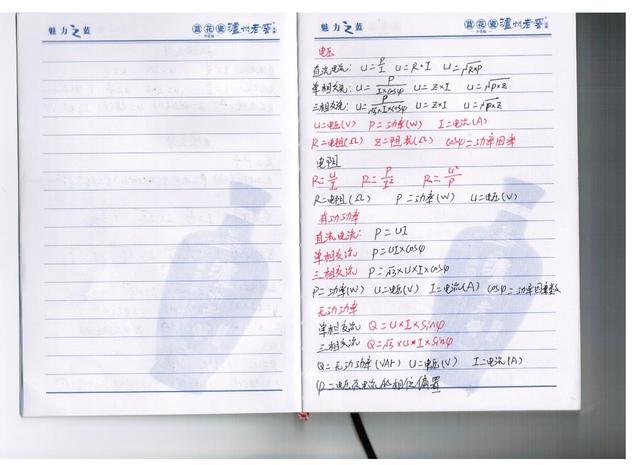 魅力之蓝
蓝花瓷 泸州老窖
魅力之蓝
蓝花瓷 泸州老窖
电压
直流电流: U=P/I U=R·I U=√R×P
单相交流: U=P/(I×cosφ) U=Z×I U=√P×Z
三相交流: U=P/(√3×I×cosφ) U=Z×I U=√P×Z
U=电压(V) P=功率(W) I=电流(A)
R=电阻(Ω) Z=阻抗(Ω) cosφ=功率因率
电阻
R=U/I R=P/I² R=U²/P
R=电阻(Ω) P=功率(W) U=电压(V)
有功功率
直流电流: P=UI
单相交流 P=UI×cosφ
三相交流 P=√3×U×I×cosφ
P=功率(W) U=电压(V) I=电流(A) cosφ=功率因素数
无功功率
单相交流 Q=U×I×Sinφ
三相交流 Q=√3×U×I×Sinφ
Q=无功功率(VAr) U=电压(V) I=电流(A)
φ=电压及电流的相位偏置